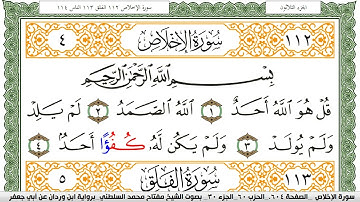 الجزء الثلاثون
سورة الإخلاص ١١٢ الفلق ١١٣ الناس ١١٤
١١٢ سُورَةُ الإِخْلَاصِ ٤
بِسْمِ اللَّهِ الرَّحْمَٰنِ الرَّحِيمِ
قُلْ هُوَ اللَّهُ أَحَدٌ ١ اللَّهُ الصَّمَدُ ٢ لَمْ يَلِدْ
وَلَمْ يُولَدْ ٣ وَلَمْ يَكُن لَّهُ كُفُؤًا أَحَدٌ ٤
١١٣ سُورَةُ الفَلَقِ ٥
سورة الإخلاص الصفحة ٦٠٤ الحزب ٦٠ الجزء ٣٠ بصوت الشيخ مفتاح محمد السلطني برواية ابن وردان عن أبي جعفر